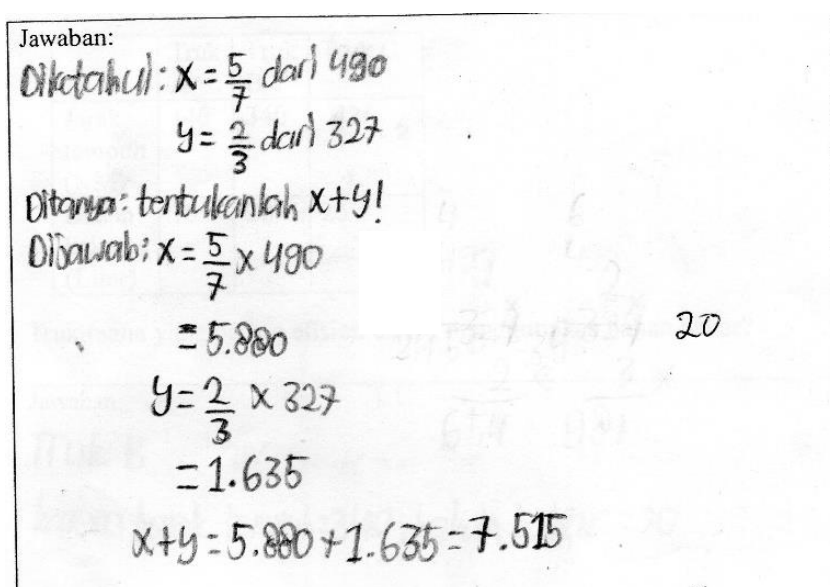 Jawaban:
Diketahui: x = 5/7 dari 490
y = 2/3 dari 327
Ditanya: tentukanlah x+y!
Dijawab: x = 5/7 x 490
= 5.880
20
y = 2/3 x 327
= 1.635
x+y = 5.880 + 1.635 = 7.515